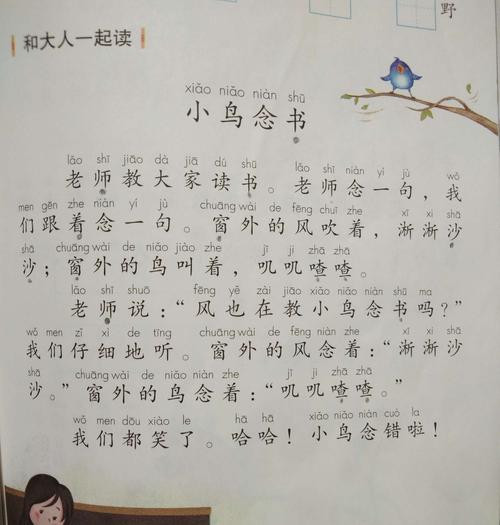 野
和大人一起读
xiǎo niǎo niàn shū
小鸟念书
lǎo shī jiāo dà jiā dú shū lǎo shī niàn yí jù wǒ
老师教大家读书。老师念一句，我
men gēn zhe niàn yí jù chuāng wài de fēng chuī zhe xī xī shā
们跟着念一句。窗外的风吹着，淅淅沙
shā chuāng wài de niǎo jiào zhe jī jī zhā zhā
沙；窗外的鸟叫着，叽叽喳喳。
lǎo shī shuō fēng yě zài jiāo xiǎo niǎo niàn shū ma
老师说：“风也在教小鸟念书吗？”
wǒ men zǐ xì de tīng chuāng wài de fēng niàn zhe xī xī shā
我们仔细地听。窗外的风念着：“淅淅沙
shā chuāng wài de niǎo niàn zhe jī jī zhā zhā
沙。”窗外的鸟念着：“叽叽喳喳。”
wǒ men dōu xiào le hā hā xiǎo niǎo niàn cuò la
我们都笑了。哈哈！小鸟念错啦！